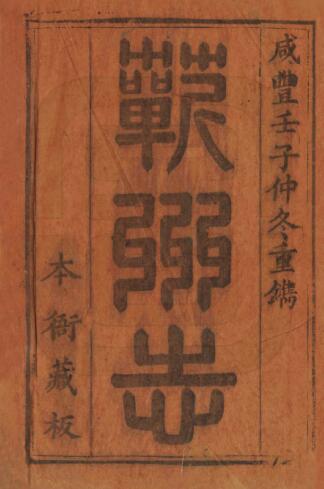 咸豐壬子仲冬重鐫
蘄州志
本衙藏板